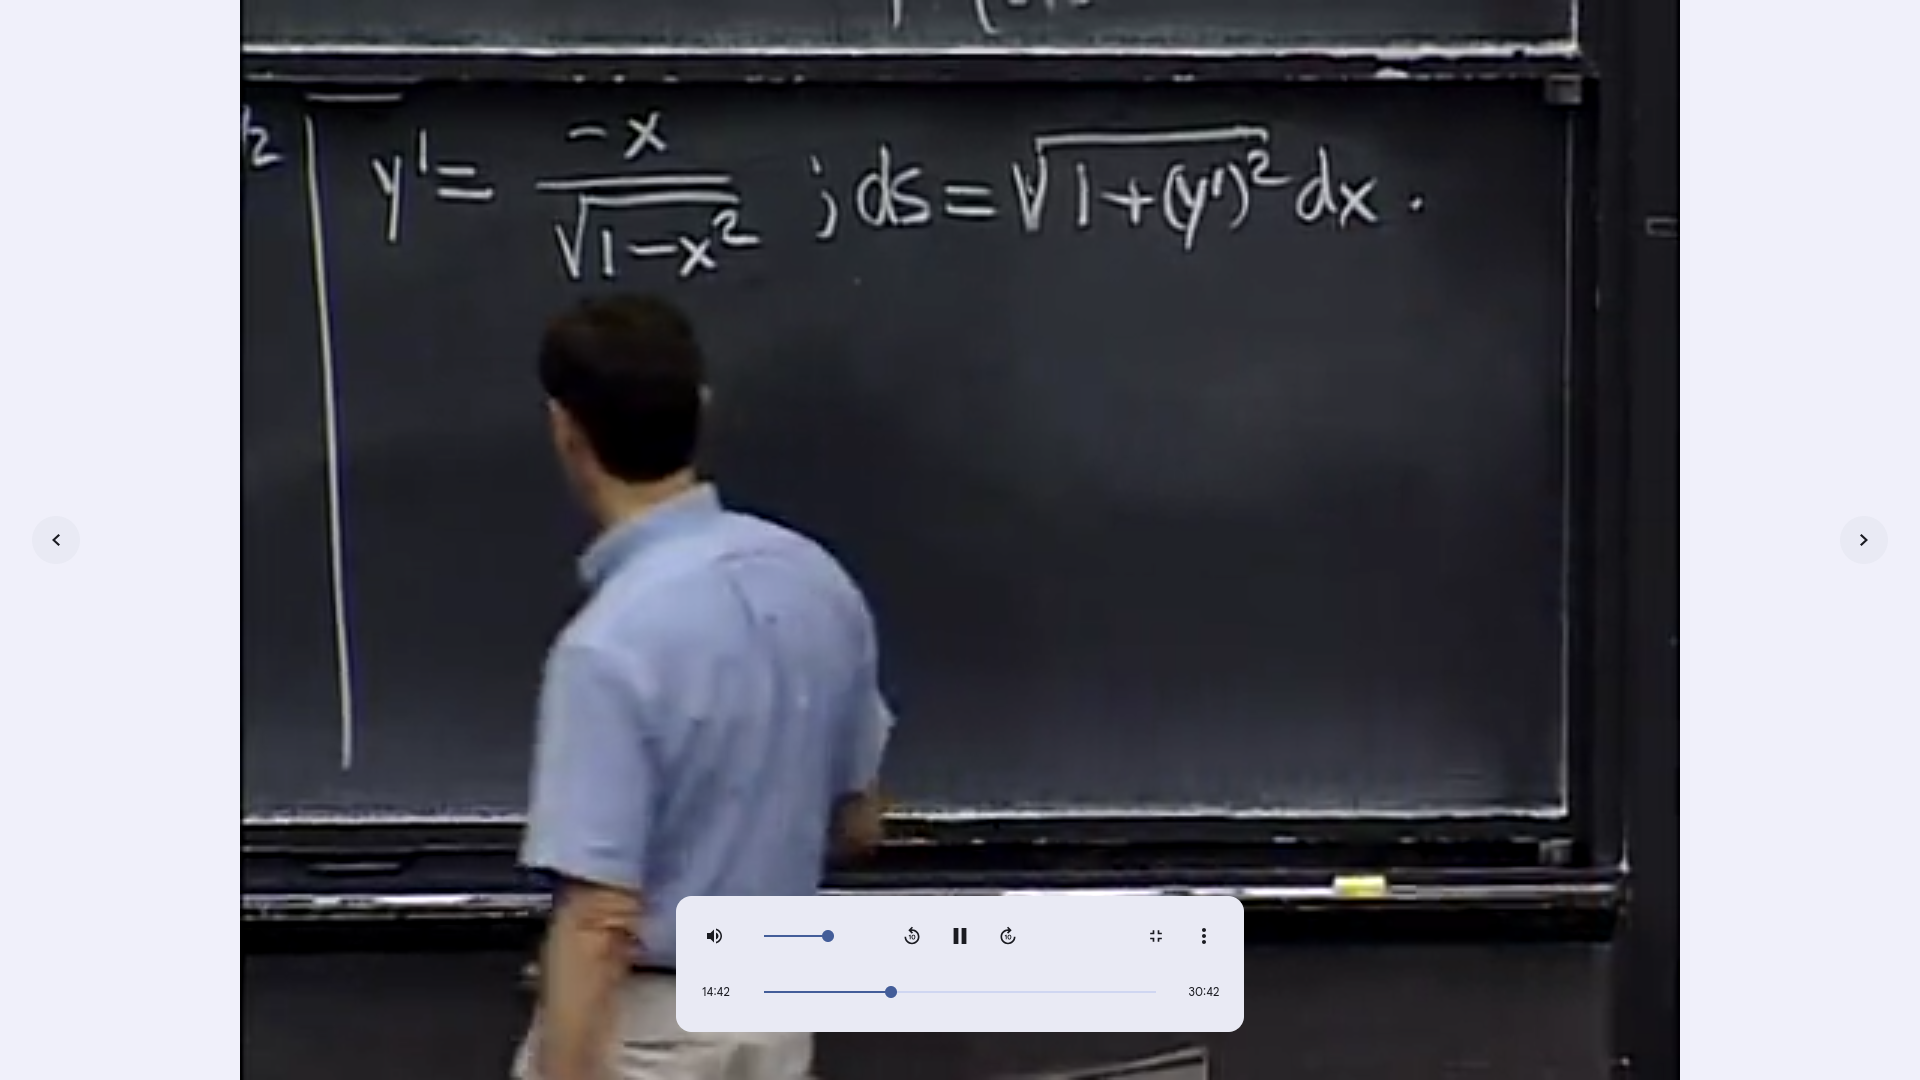 y' = -x / √(1-x²) ; ds = √(1+(y')²) dx .
14:42
30:42